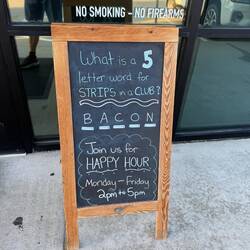 NO SMOKING - NO FIREARMS
What is a 5
letter word for
STRIPS in a CLUB?
BACON
Join us for
HAPPY HOUR
Monday - Friday
2pm to 5pm